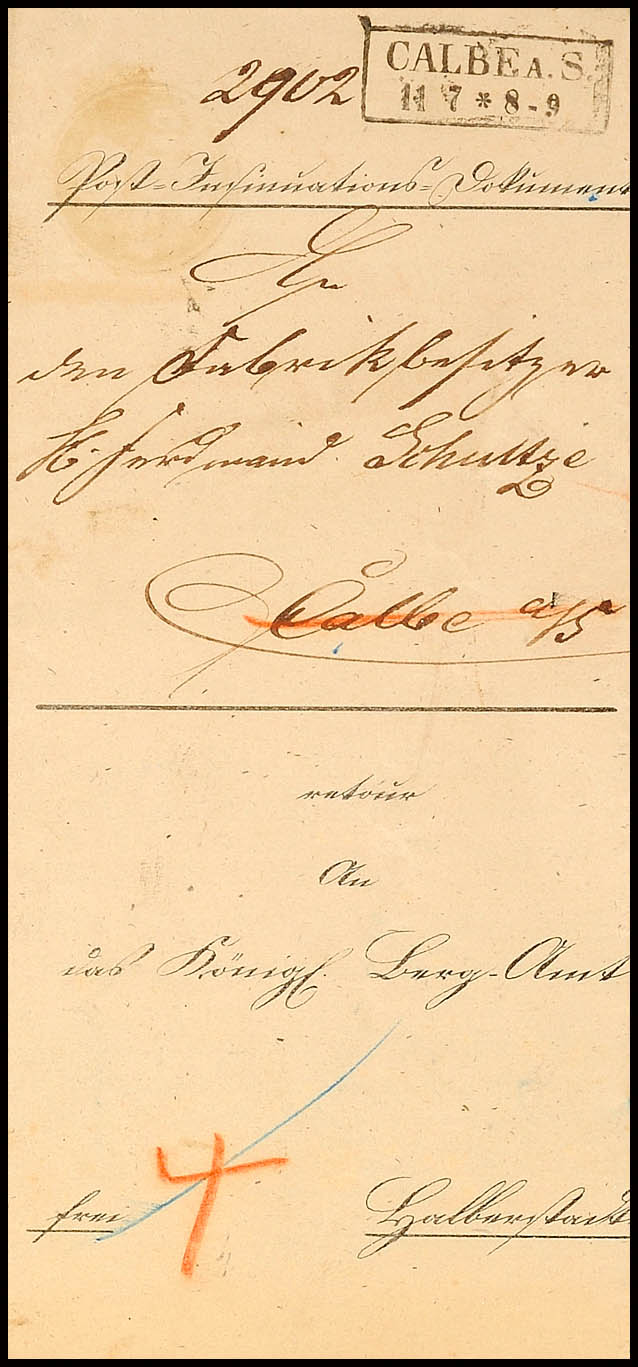 CALBE A. S.
11 7 * 8-9
2902
Post-Insinuations-Dokument
An
den Fabrikbesitzer
H. Ferdinand Schultze
Calbe a/S
retour
An
das Königl. Berg-Amt
4
frei
Halberstadt